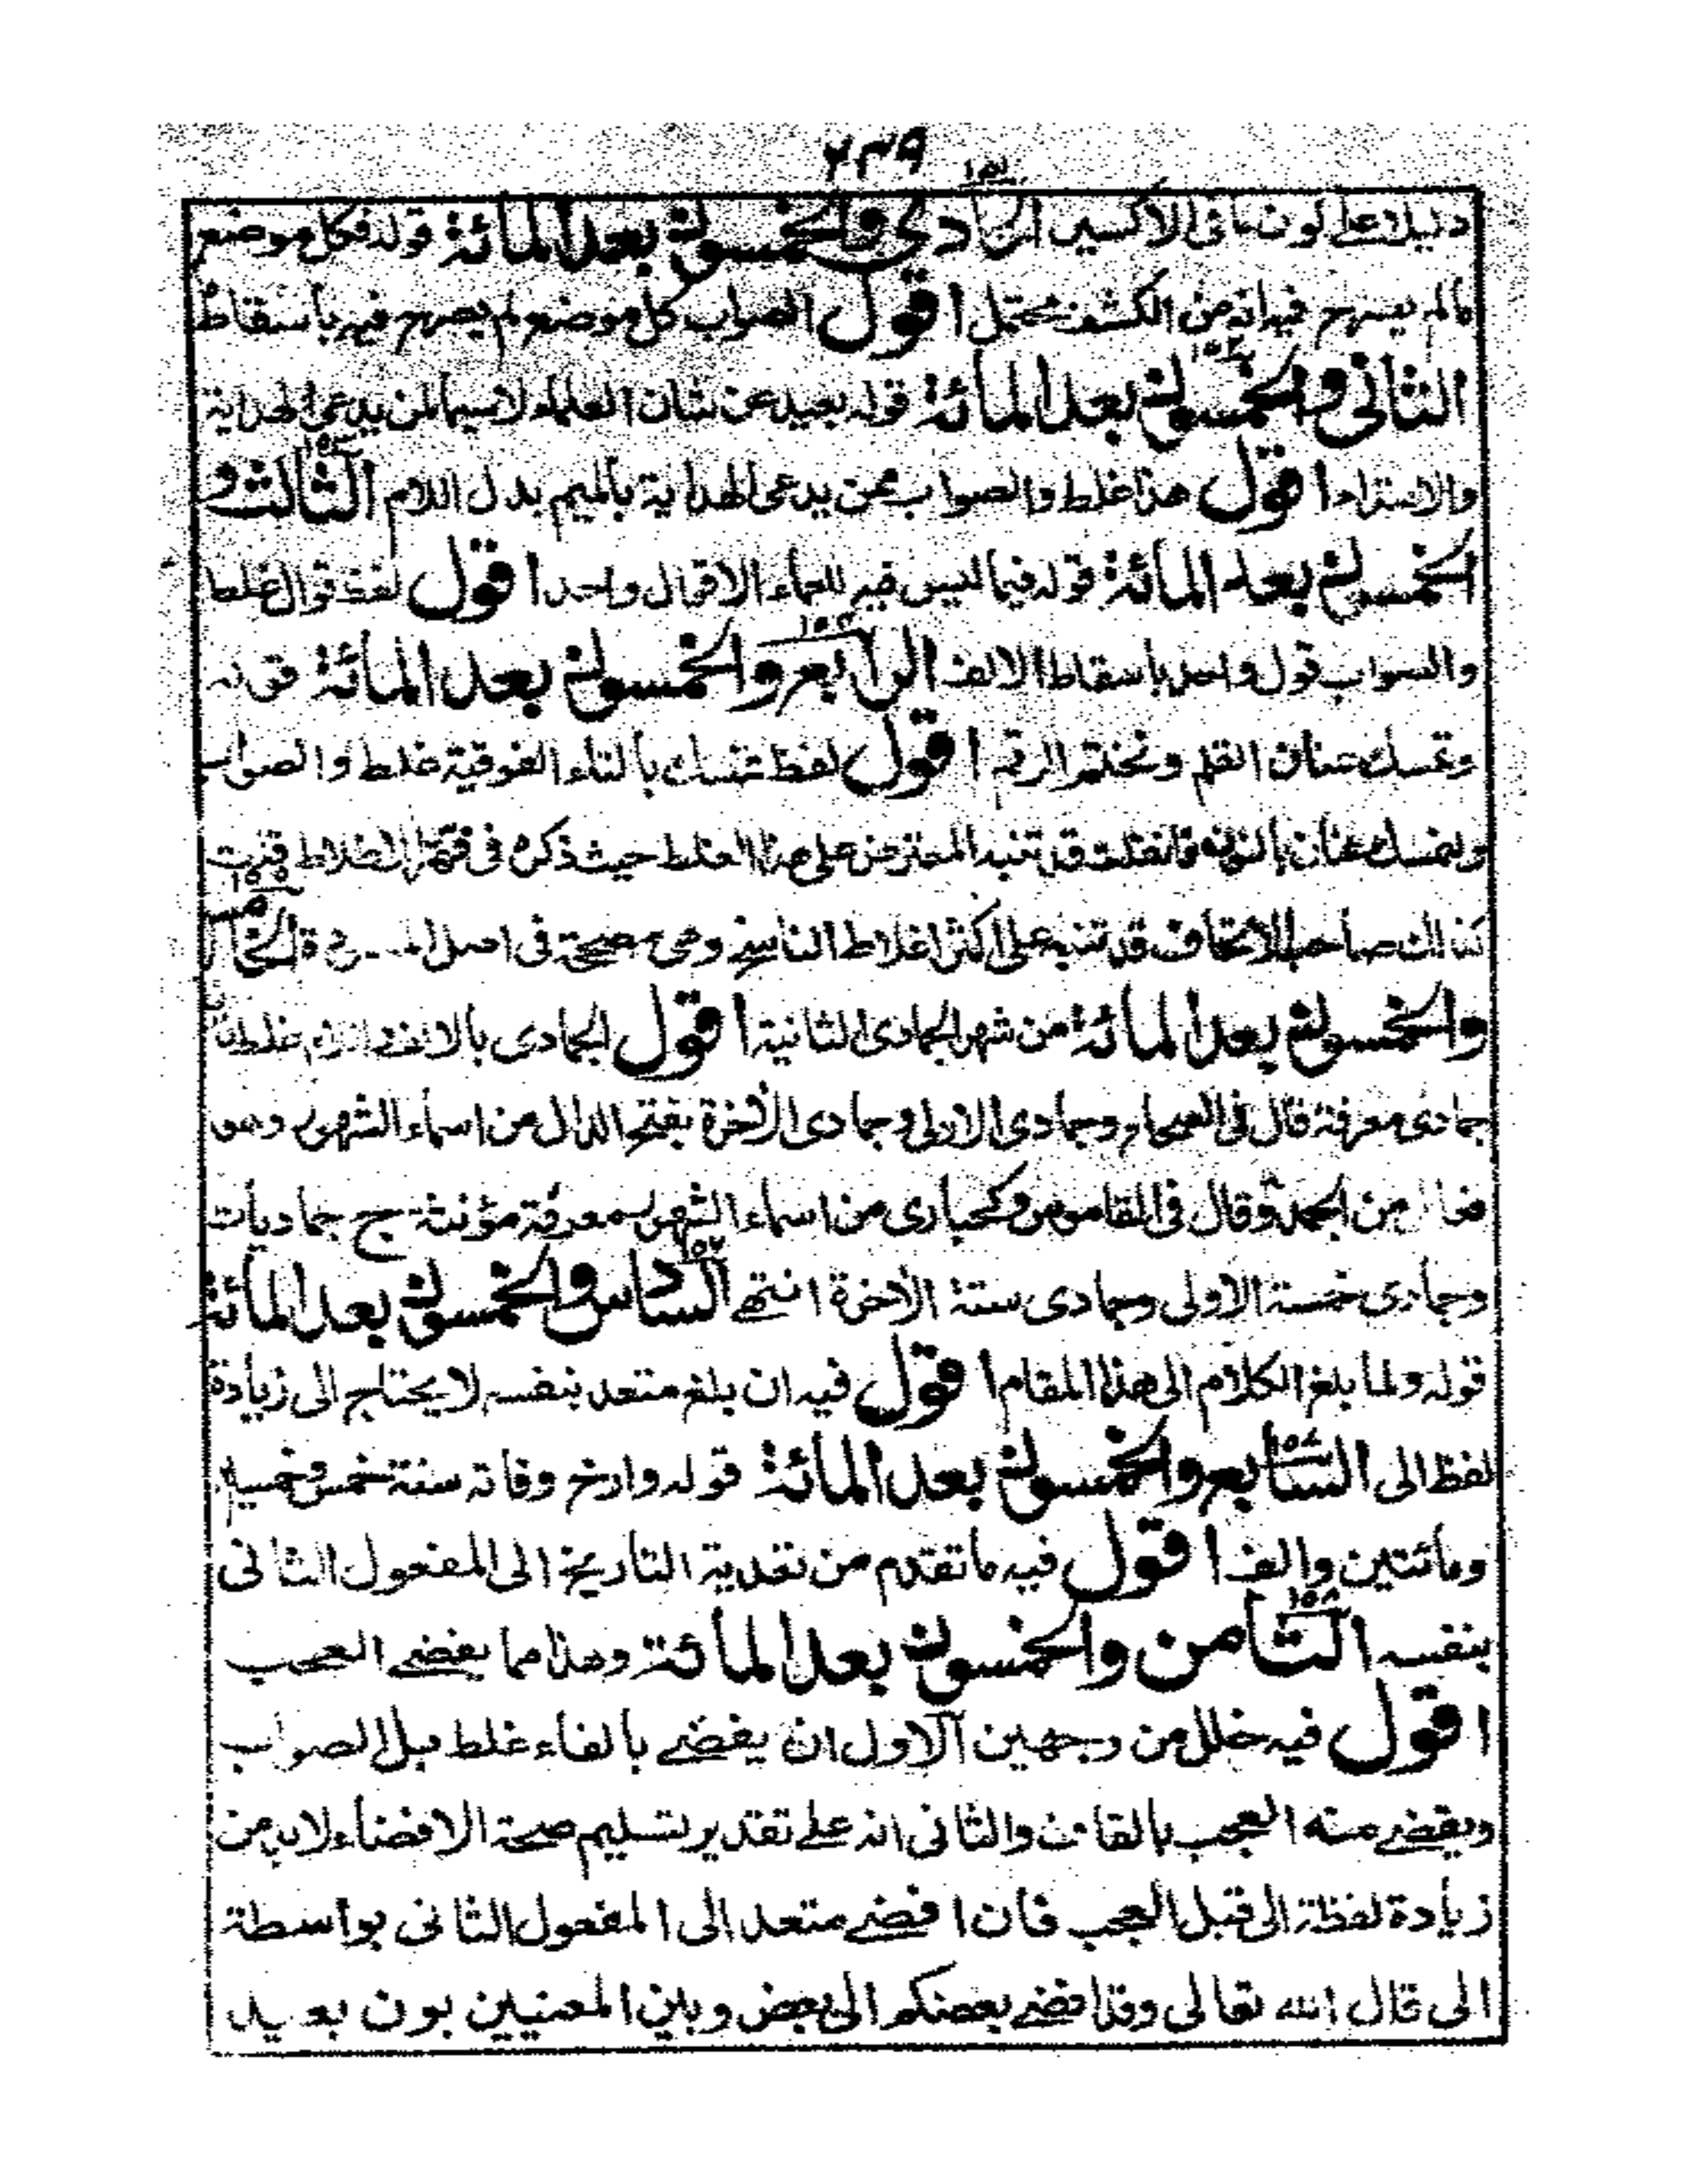 ٢٣٩
١٥١
دليلا على كون ما فى الاكسير الحادي والخمسون بعد المائة قوله فكل موضع
مالم يصرح فيه انه من الكشف محتمل اقول الصواب كل موضع لم يصرح فيه باسقاط
١٥٢
الثاني والخمسون بعد المائة قوله بعيد عن شان العلماء لاسيما لمن يدعى الهداية
١٥٣
والاسترام اقول هذا غلط والصواب ممن يدعى الهداية بالميم بدل اللام الثالث و
الخمسون بعد المائة قوله فيما ليس فيه للعلماء الا قوال واحد اقول لفظ قوال غلط
١٥٤
والصواب قول واحد باسقاط الالف الرابع والخمسون بعد المائة قوله
وتمسك عنان القلم ونختم الرقم اقول لفظ تمسك بالتاء الفوقية غلط والصواب
ونمسك عنان بالنون فان قلت قد تنبه المعترض على هذا الغلط حيث ذكره فى فهرس الاغلاط قلت
١٥٥
كذالك صاحب الاتحاف قد تنبه على اكثر اغلاط الناسخ وهى مصححة فى اصل الخامس
والخمسون بعد المائة من شهر الجمادى الثانية اقول الجمادى بالالف واللام غلط فان
جمادى معرفة قال فى الصحاح وجمادى الاولى وجمادى الآخرة بفتح الدال من اسماء الشهور وهو
فعالى من الجمد وقال فى القاموس وكحبارى من اسماء الشهور معرفة مؤنثة ج جماديات
١٥٦
وجمادى خمسة الاولى وجمادى ستة الآخرة انتهى السادس والخمسون بعد المائة
قوله ولما بلغ الكلام الى هذا المقام اقول فيه ان بلغ متعد بنفسه لا يحتاج الى زيادة
١٥٧
لفظ الى السابع والخمسون بعد المائة قوله وارخ وفاته سنة خمس وخمسين
ومائتين والف اقول فيه ما تقدم من تعدية التاريخ الى المفعول الثانى
١٥٨
بنفسه الثامن والخمسون بعد المائة وهذا مما يفضى العجب
اقول فيه خلل من وجهين الاول ان يفضى بالفاء غلط بل الصواب
ويقضى منه العجب بالقاف والثانى انه على تقدير تسليم صحة الافضاء لابد من
زيادة لفظة الى قبل العجب فان افضى متعد الى المفعول الثانى بواسطة
الى قال الله تعالى وقد افضى بعضكم الى بعض وبين المعنيين بون بعيد